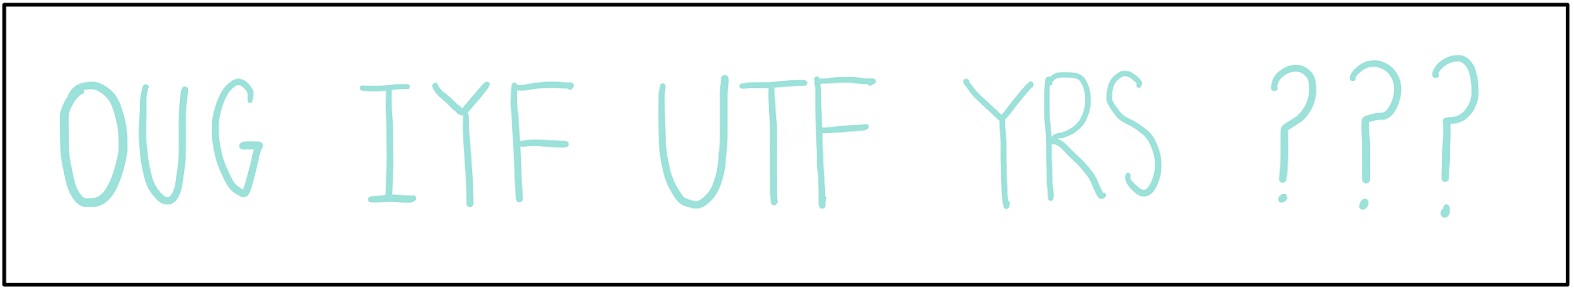 OUG IYF UTF YRS ???